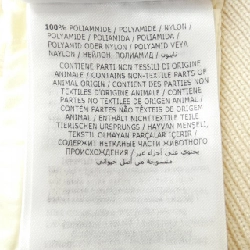 100% POLIAMMIDE / POLYAMIDE / NYLON /
POLYAMIDE / POLIAMIDA / POLIAMIDA /
POLYAMID ODER NYLON / POLYAMID VEYA
NAYLON / НЕЙЛОН, ПОЛИАМИД /
CONTIENE PARTI NON TESSILI DI ORIGINE
ANIMALE / CONTAINS NON-TEXTILE PARTS OF
ANIMAL ORIGIN / CONTIENT DES PARTIES NON
TEXTILES D'ORIGINE ANIMALE / CONTIENE
PARTES NO TEXTILES DE ORIGEN ANIMAL /
CONTÉM PARTES NÃO TÊXTEIS DE ORIGEM
ANIMAL / ENTHÄLT NICHTTEXTILE TEILE
TIERISCHEN URSPRUNGS / HAYVAN MENŞELİ,
TEKSTİL OLMAYAN PARÇALAR İÇERİR /
СОДЕРЖИТ НЕТКАНЫЕ ЧАСТИ ЖИВОТНОГО
ПРОИСХОЖДЕНИЯ / يحتوي على أجزاء غير
منسوجة من أصل حيواني